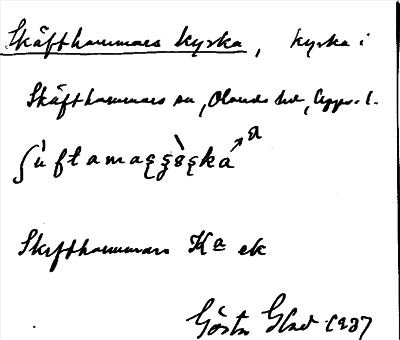 Skäfthammars kyrka, kyrka i
Skäfthammars sn, Olands hd, Upps. l.
Skefthammars Ka ek
Gösta Glad 1937